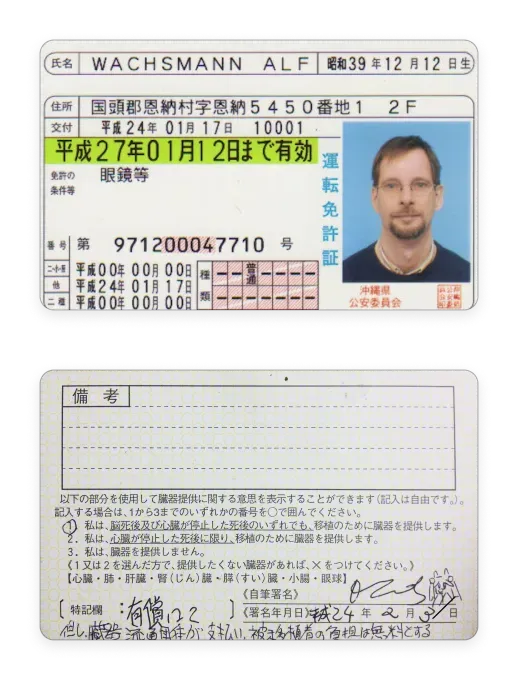 氏名 WACHSMANN ALF 昭和39年12月12日生
住所 国頭郡恩納村字恩納5450番地1 2F
交付 平成24年01月17日 10001
平成27年01月12日まで有効
免許の
条件等
眼鏡等
運転免許証
番号 第 971200047710 号
二・小・原 平成00年00月00日
他 平成24年01月17日
二種 平成00年00月00日
種類
普通
沖縄県
公安委員会
備考
以下の部分を使用して臓器提供に関する意思を表示することができます(記入は自由です。)。
記入する場合は、1から3までのいずれかの番号を〇で囲んでください。
1. 私は、脳死後及び心臓が停止した死後のいずれでも、移植のために臓器を提供します。
2. 私は、心臓が停止した死後に限り、移植のために臓器を提供します。
3. 私は、臓器を提供しません。
《1又は2を選んだ方で、提供したくない臓器があれば、×をつけてください。》
【心臓・肺・肝臓・腎(じん)臓・膵(すい)臓・小腸・眼球】
[特記欄:有償
《自筆署名》
《署名年月日》平成24年2月3日
但し、臓器 が支払い、被移植者の負担は無料とする